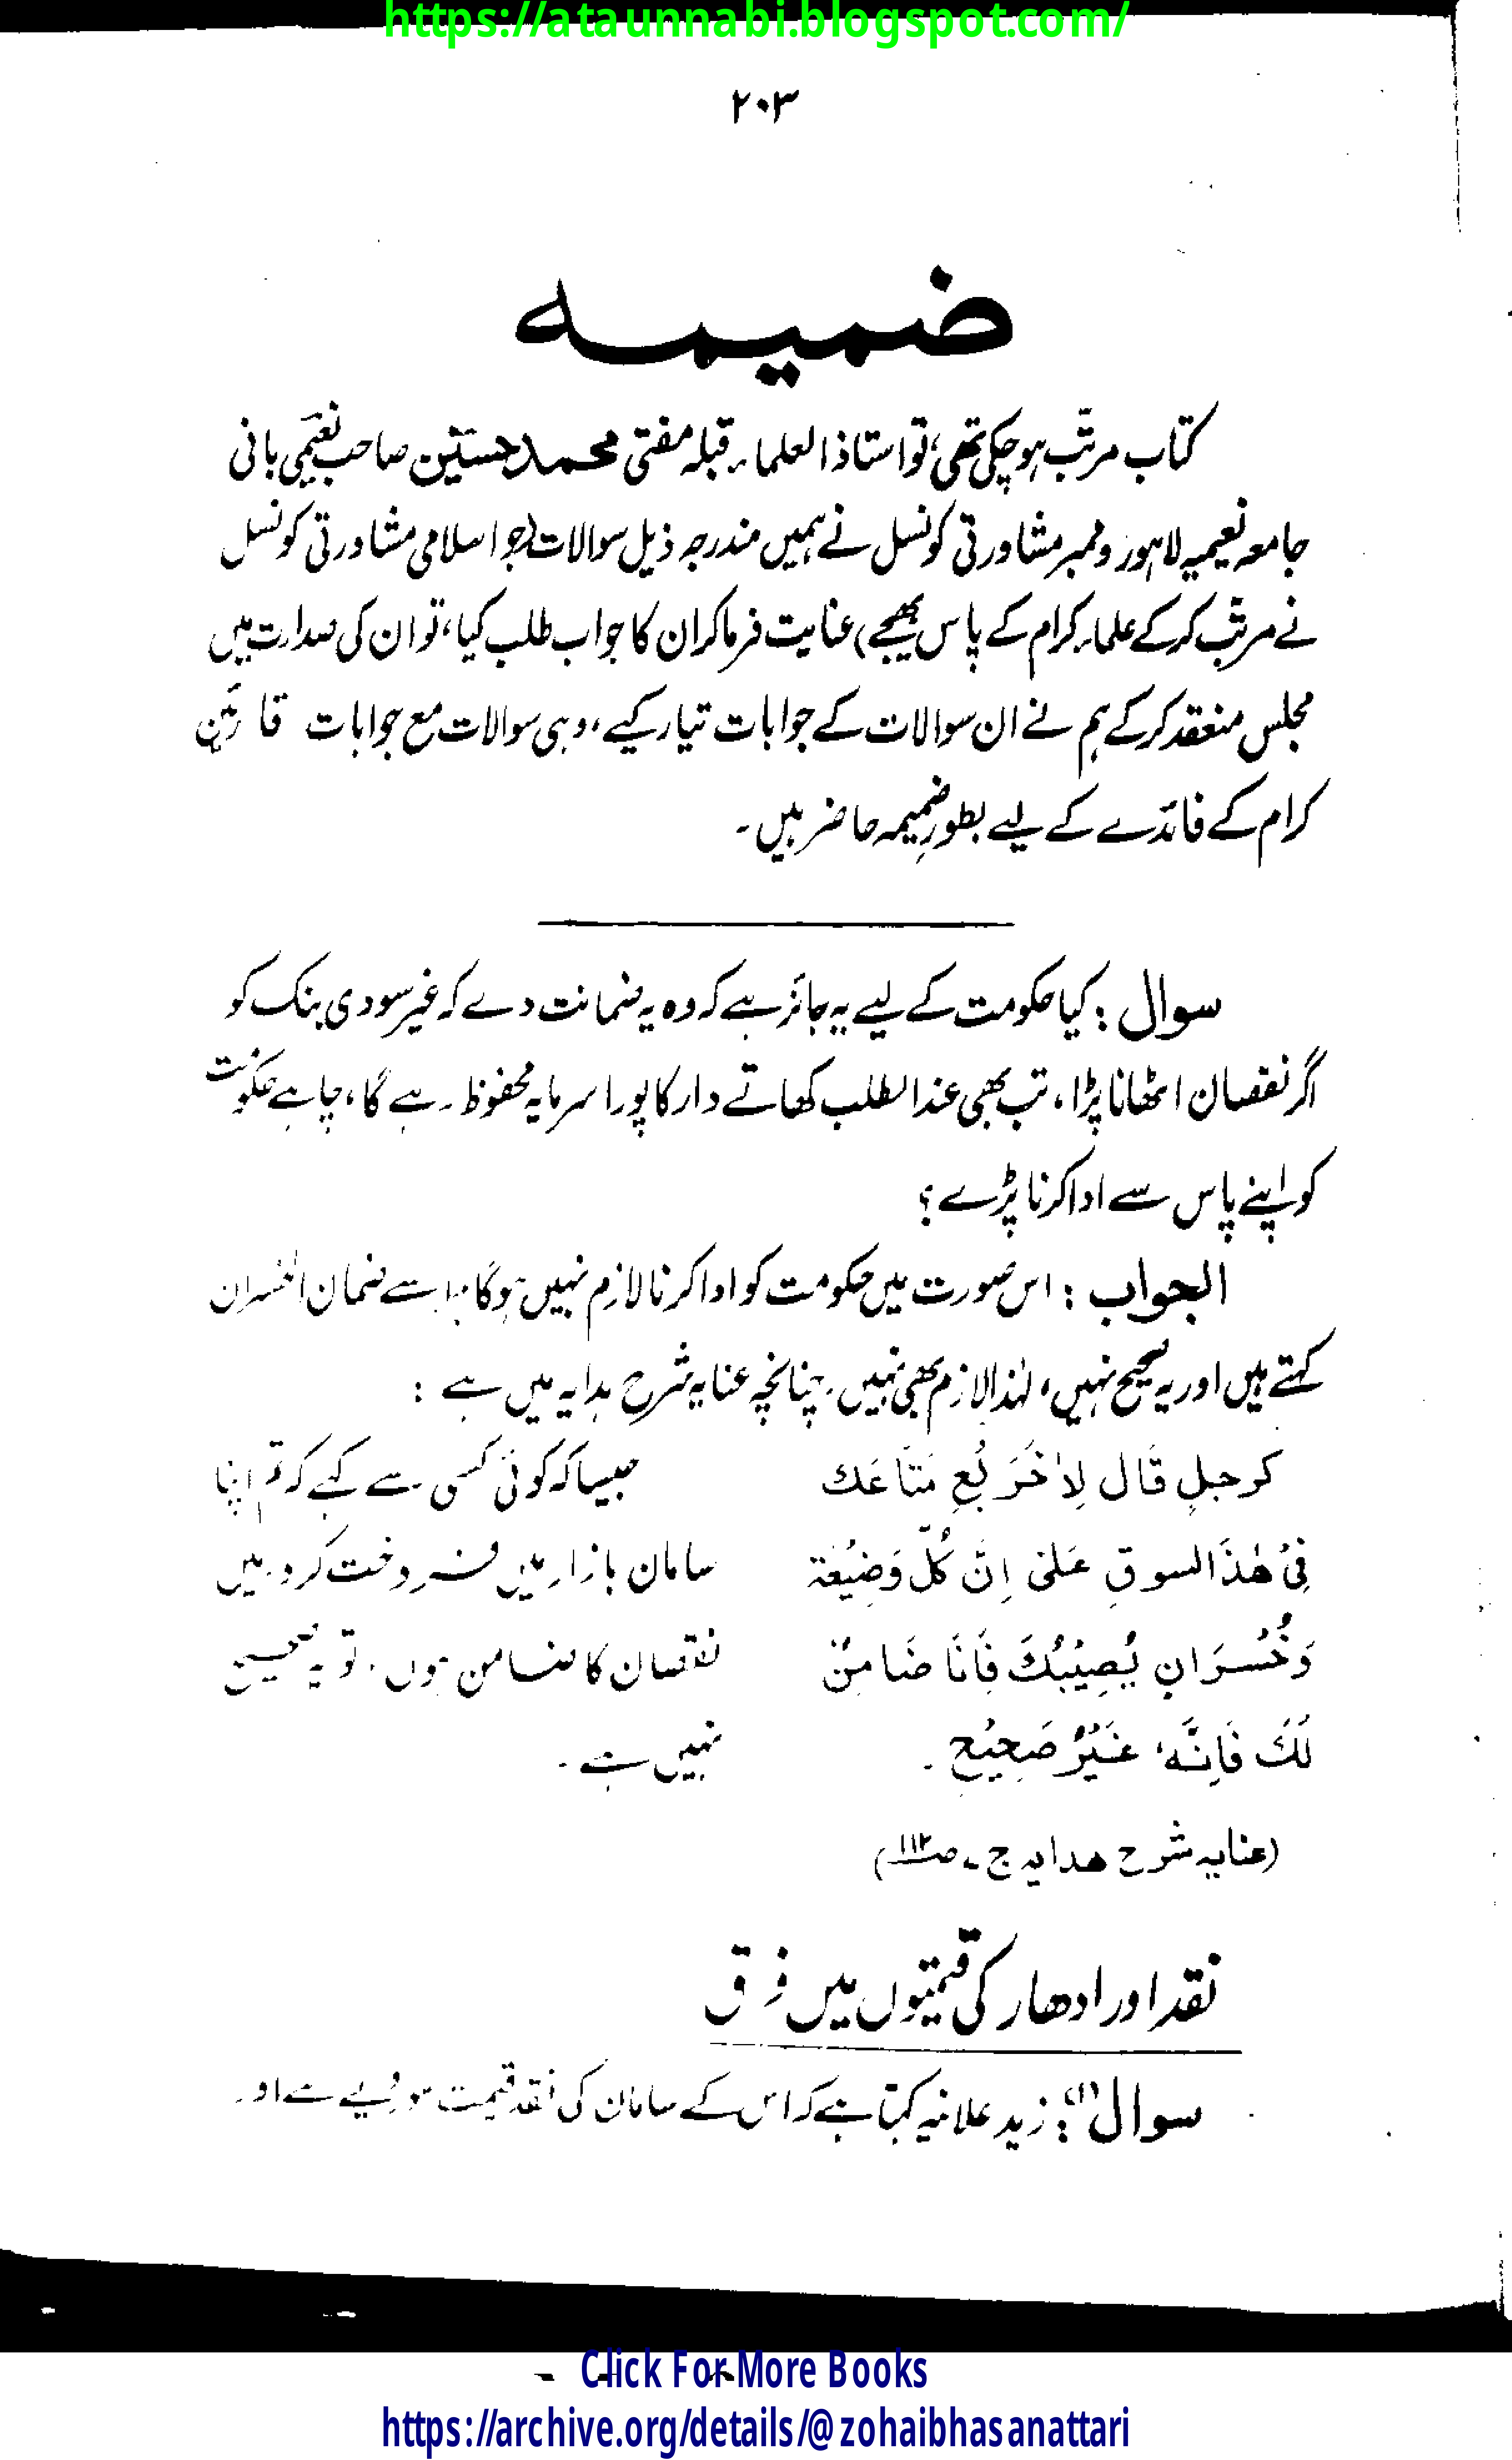 https://ataunnabi.blogspot.com/
۲۰۳
ضمیمہ
کتاب مرتب ہو چکی تھی، تو استاذ العلماء قبلہ مفتی محمد حسین صاحب نعیمی بانی
جامعہ نعیمیہ لاہور و ممبر مشاورتی کونسل نے ہمیں مندرجہ ذیل سوالات (جو اسلامی مشاورتی کونسل
نے مرتب کر کے علماء کرام کے پاس بھیجے) عنایت فرما کر ان کا جواب طلب کیا، تو ان کی صدارت میں
مجلس منعقد کر کے ہم نے ان سوالات کے جوابات تیار کیے، وہی سوالات مع جوابات قارئین
کرام کے فائدے کے لیے بطورِ ضمیمہ حاضر ہیں۔
سوال : کیا حکومت کے لیے یہ جائز ہے کہ وہ یہ ضمانت دے کہ غیر سودی بنک کو
اگر نقصان اٹھانا پڑا، تب بھی عند الطلب کھاتے دار کا پورا سرمایہ محفوظ رہے گا، چاہے حکومت
کو اپنے پاس سے ادا کرنا پڑے؟
الجواب : اس صورت میں حکومت کو ادا کرنا لازم نہیں ہوگا۔ اسے ضمان الخسران
کہتے ہیں اور یہ صحیح نہیں، لہٰذا لازم بھی نہیں۔ چنانچہ عنایہ شرح ہدایہ میں ہے :
کرجلٍ قَال لِاٰخَرَ بِعِ مَتَاعَك جیسا کہ کوئی کسی سے کہے کہ تم اپنا
فِیْ هٰذَا السوقِ عَلیٰ اِنَّ کُلَّ وَضِیْعَة سامان بازار میں فروخت کرو میں
وَخُسْرَانٍ یُصِیْبُكَ فَاَنَا ضَامِنٌ نقصان کا ضامن ہوں، تو یہ صحیح
لَكَ فَاِنَّهٗ غَیْرُ صَحِیْحٍ۔ نہیں ہے۔
(عنایہ شرح ھدایہ ج ۔ صـ۱۱۲)
نقد اور ادھار کی قیمتوں میں فرق
سوال (۱) : زید علانیہ کہتا ہے کہ اس کے سامان کی نقد قیمت سو روپیے ہے اور
Click For More Books
https://archive.org/details/@zohaibhasanattari